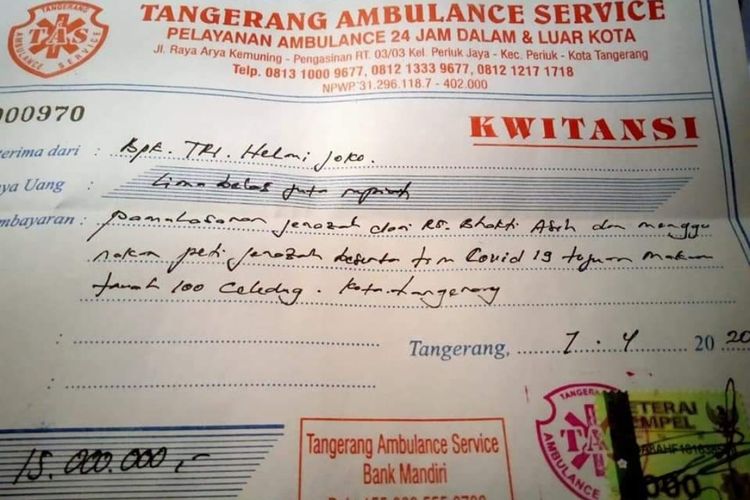 TANGERANG AMBULANCE SERVICE
TAS
PELAYANAN AMBULANCE 24 JAM DALAM & LUAR KOTA
Jl. Raya Arya Kemuning - Pengasinan RT. 03/03 Kel. Periuk Jaya - Kec. Periuk - Kota Tangerang
Telp. 0813 1000 9677, 0812 1333 9677, 0812 1217 1718
NPWP 31.296.118.7 - 402.000
000970
KWITANSI
terima dari : Bpk. TRI. Helmi Joko.
ya Uang : Lima belas juta rupiah
mbayaran : pemulasaran jenazah dari RS. Bhakti Asih dan menggu
nakan peti jenazah beserta tim Covid 19 tujuan makam
tanah 100 Celedug. Kota. tangerang
Tangerang, 7 - 4 20 20
15.000.000,-
Tangerang Ambulance Service
Bank Mandiri
TANGERANG
TAS
AMBULANCE
ETERAI
EMPEL
000